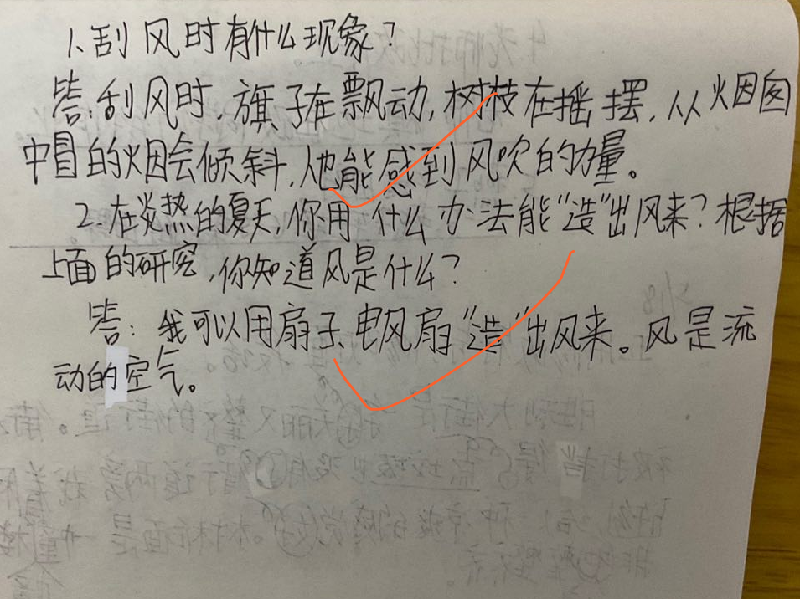 1、刮风时有什么现象？
答：刮风时，旗子在飘动，树枝在摇摆，从烟囱
中冒的烟会倾斜，人也能感到风吹的力量。
2、在炎热的夏天，你用什么办法能“造”出风来？根据
上面的研究，你知道风是什么？
答：我可以用扇子、电风扇“造”出风来。风是流
动的空气。